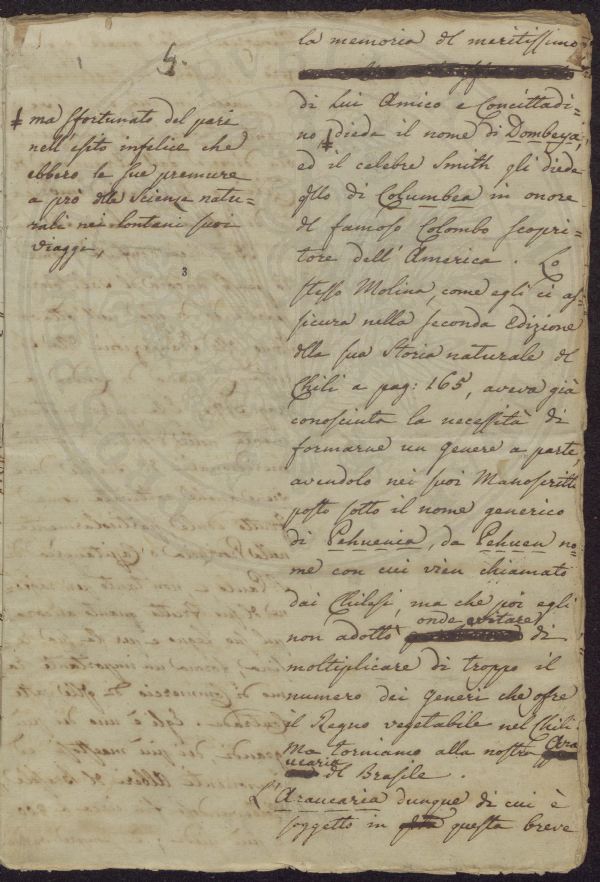 5.
la memoria del meritissimo
di Lui Amico e Concittadi=
no ‡ diede il nome di Dombeya,
ed il celebre Smith gli diede
qllo di Columbea in onore
del famoso Colombo scopri=
tore dell'America. Lo
stesso Molina, come egli ci as=
sicura nella seconda Edizione
della sua Storia naturale del
Chili a pag: 165, aveva già
conosciuta la necessità di
formarne un genere a parte,
avendolo nei suoi Manoscritti
posto sotto il nome generico
di Pehuenia, da Pehuen no=
me con cui vien chiamato
dai Chilesi, ma che poi egli
non adottò onde evitare di
moltiplicare di troppo il
numero dei generi che ofre
il Regno vegetabile nel Chili.
Ma torniamo alla nostra Arau
ucaria del Brasile.
L'Araucaria dunque di cui è
soggetto in questa breve
‡ ma sfortunato del pari
nell'esito infelice che
ebbero le sue premure
a prò dlle Scienze natu=
rali nei lontani suoi
viaggi,
3